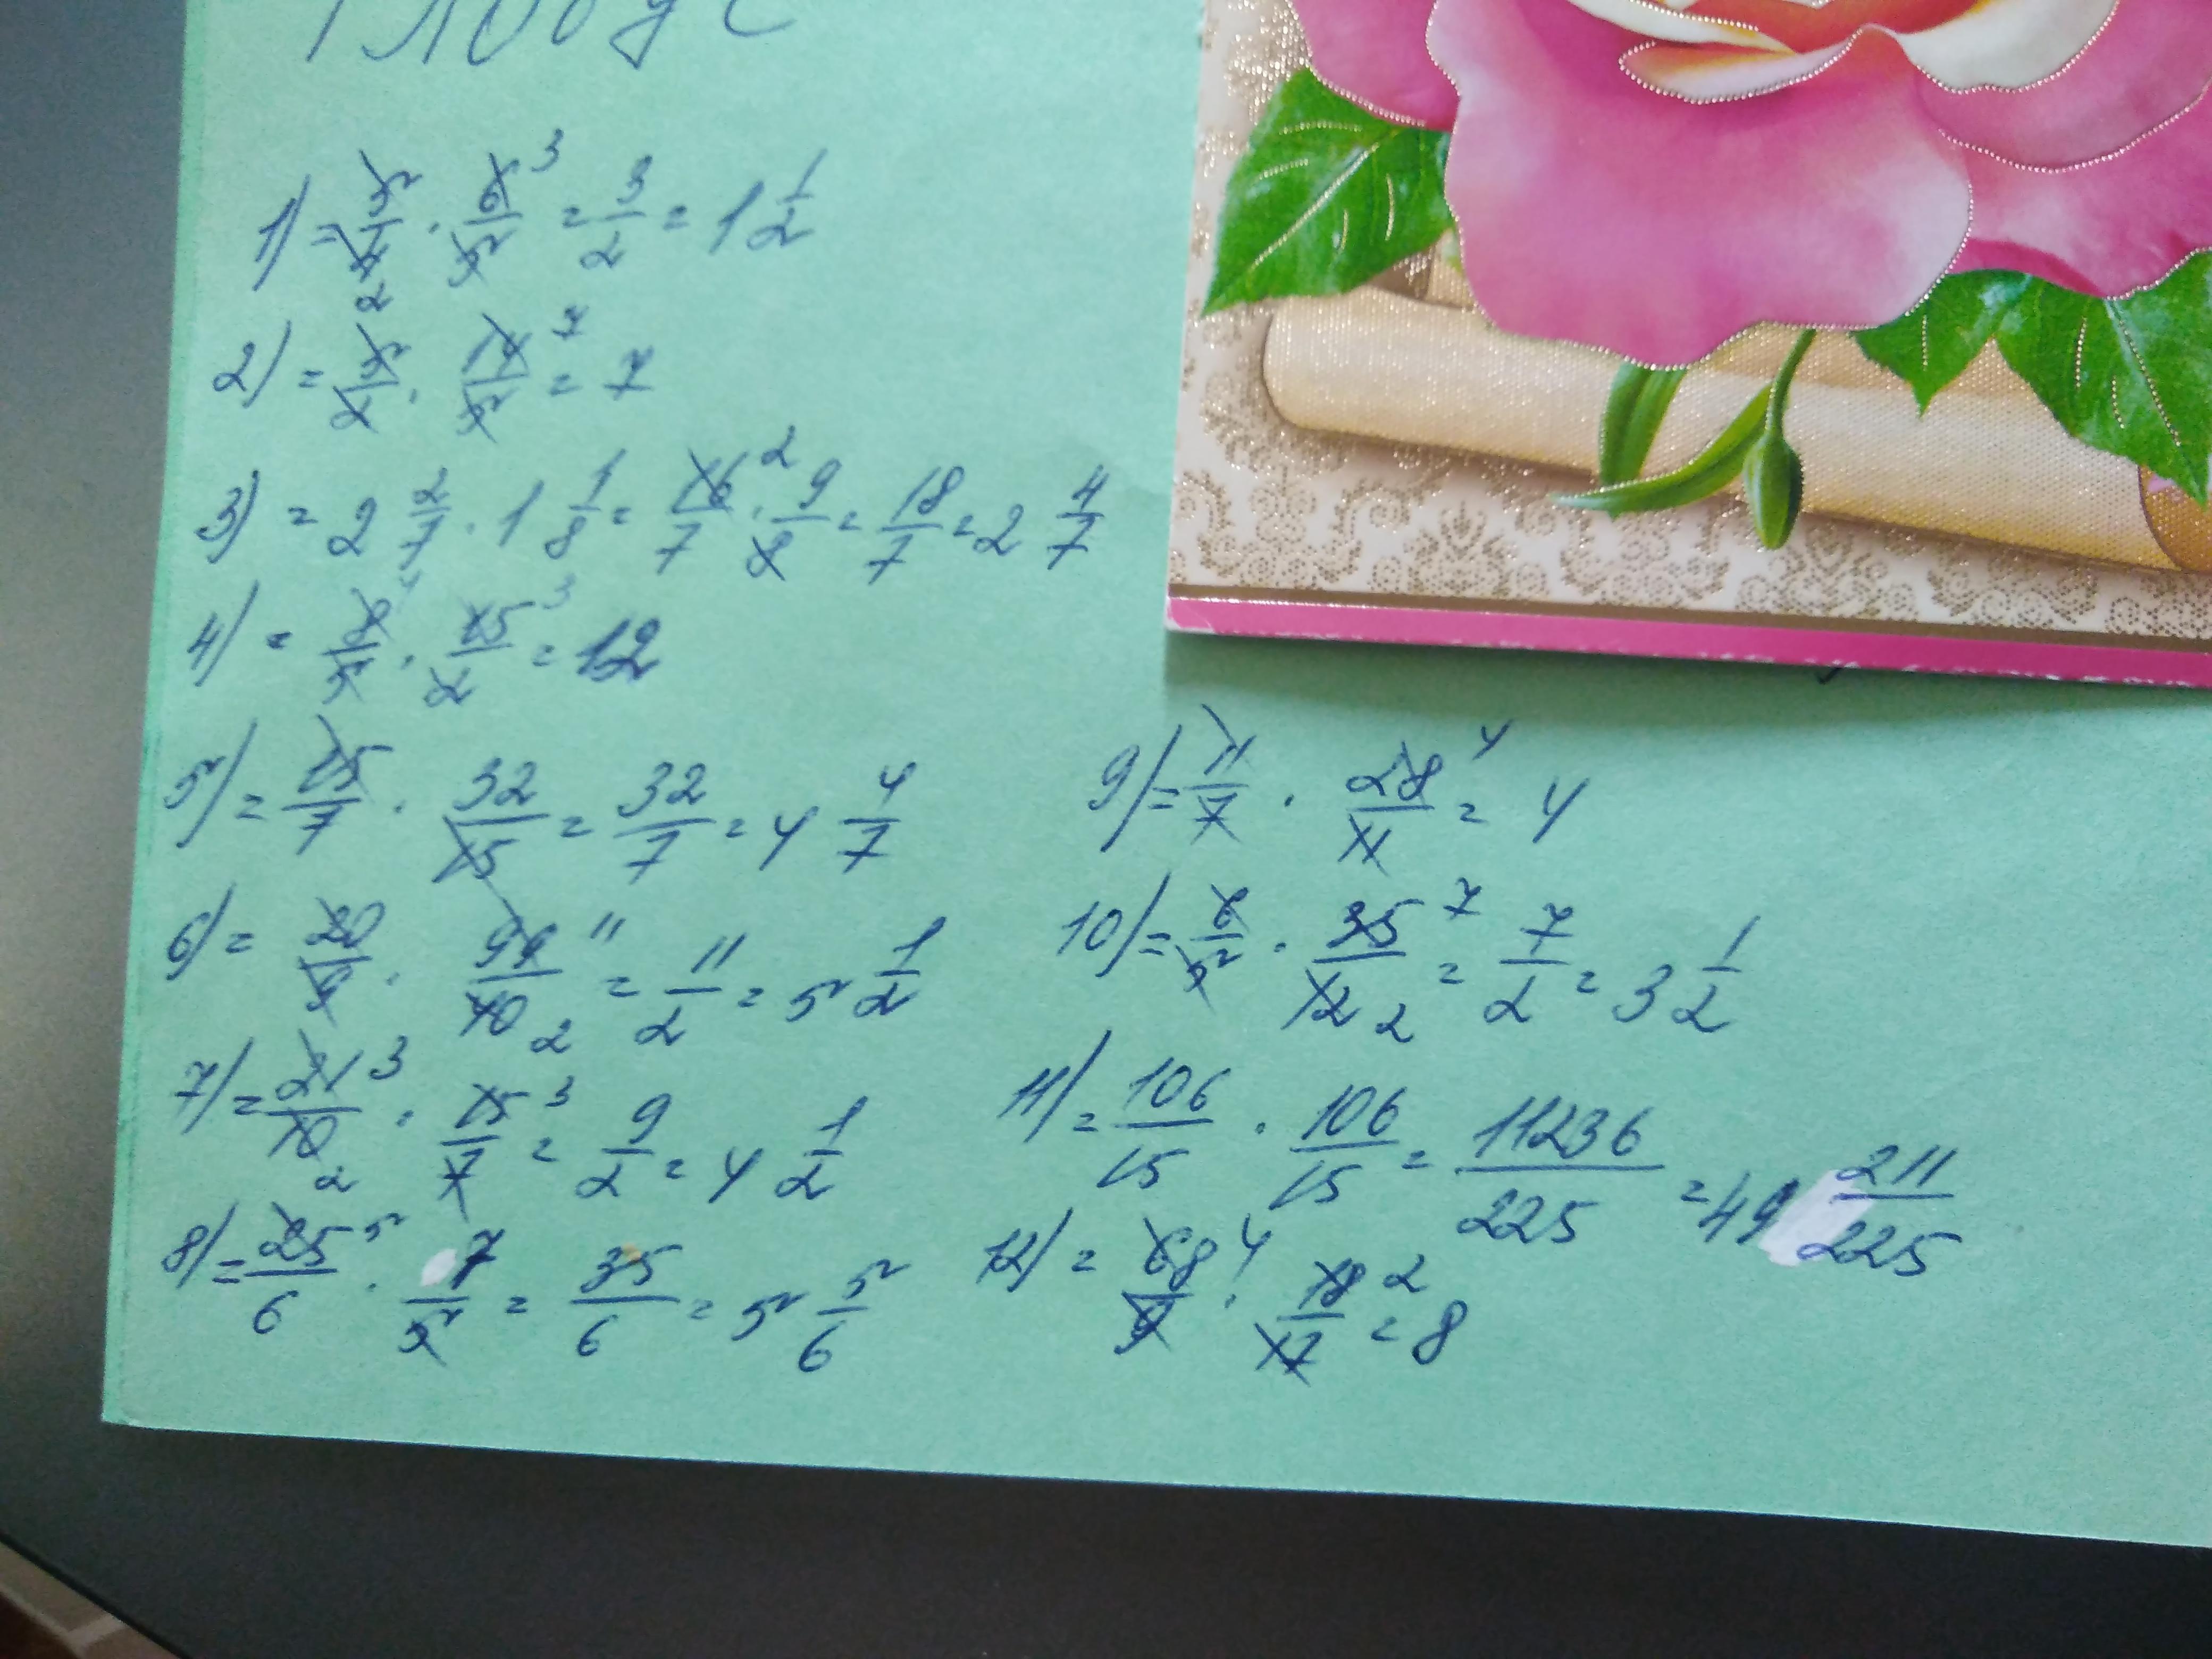 1) = 5/4 · 6/5 = 3/2 = 1 1/2
2) = 5/2 · 14/5 = 7
3) = 2 2/7 · 1 1/8 = 16/7 · 9/8 = 18/7 = 2 4/7
4) = 8/5 · 15/2 = 12
5) = 15/7 · 32/15 = 32/7 = 4 4/7
6) = 20/9 · 99/40 = 11/2 = 5 1/2
7) = 21/10 · 15/7 = 9/2 = 4 1/2
8) = 25/6 · 7/5 = 35/6 = 5 5/6
9) = 11/7 · 28/11 = 4
10) = 6/5 · 35/12 = 7/2 = 3 1/2
11) = 106/15 · 106/15 = 11236/225 = 49 211/225
12) = 68/9 · 18/17 = 8